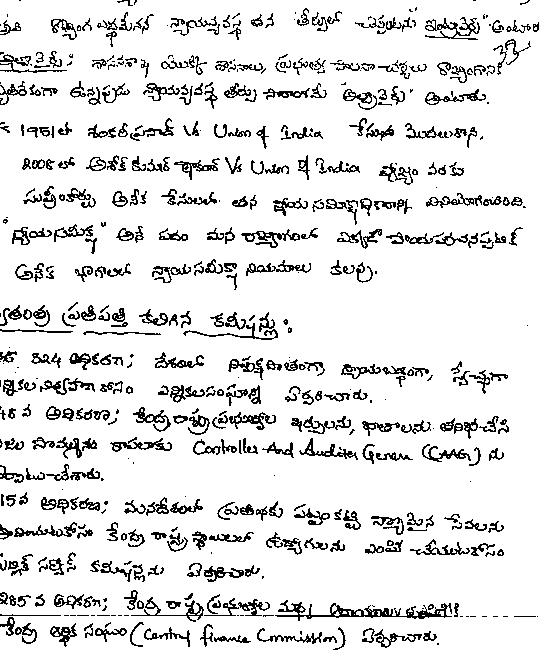 రాజ్యాంగ బద్ధమేనని న్యాయవ్యవస్థ తన తీర్పులో చెప్పటంను "ఇంట్రావైర్స్" అంటారు
అల్ట్రావైర్స్: శాసనశాఖ యొక్క శాసనాలు, ప్రభుత్వ పాలనా చర్యలు రాజ్యాంగానికి
వ్యతిరేకంగా ఉన్నప్పుడు న్యాయవ్యవస్థ తీర్పు నిచ్చారంటే "అల్ట్రావైర్స్" అంటారు.
1951లో శంకరీప్రసాద్ Vs Union of India కేసుతో మొదలుకొని,
2008లో అశోక్ కుమార్ ఠాకూర్ Vs Union of India వ్యాజ్యం వరకు
సుప్రీంకోర్టు అనేక కేసులలో తన న్యాయ సమీక్షాధికారాన్ని వినియోగించింది.
"న్యాయసమీక్ష" అనే పదం మన రాజ్యాంగంలో ఎక్కడా పొందుపరచనప్పటికి
అనేక భాగాలలో న్యాయసమీక్షా నియమాలు కలవు.
స్వతంత్ర ప్రతిపత్తి కలిగిన కమీషన్లు:
324 అధికరణ; దేశంలో నిష్పక్షపాతంగా, న్యాయబద్ధంగా, స్వేచ్ఛగా
ఎన్నికల నిర్వహణ కోసం ఎన్నికలసంఘాన్ని ఏర్పరిచారు.
148 వ అధికరణ; కేంద్ర రాష్ట్ర ప్రభుత్వాల ఖర్చులను, ఖాతాలను తనిఖీ చేసి
ప్రజల సొమ్మును కాపలాకు Controller And Auditor General (CAAG) ను
ఏర్పాటు చేశారు.
315 వ అధికరణ; మనదేశంలో ప్రతిభకు పట్టంకట్టి నాణ్యమైన సేవలను
అందించుటకోసం కేంద్ర రాష్ట్ర స్థాయిలలో ఉద్యోగులను ఎంపిక చేయుటకోసం
పబ్లిక్ సర్వీస్ కమీషన్లను ఏర్పరిచారు.
265 వ అధికరణ; కేంద్ర, రాష్ట్ర ప్రభుత్వాల మధ్య
కేంద్ర ఆర్థిక సంఘం (Central finance Commission) ఏర్పరిచారు.